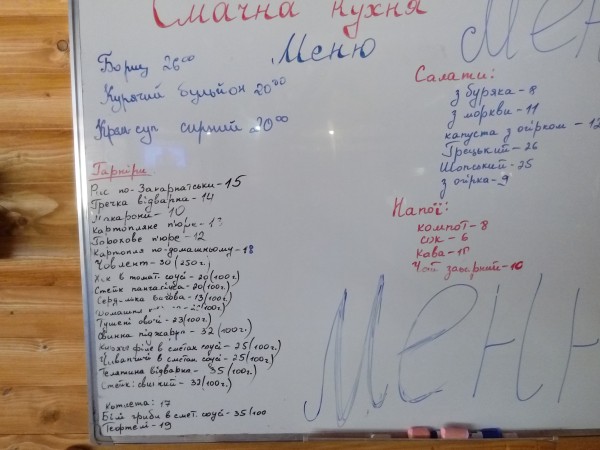 Смачна кухня
Меню
Борщ 26⁰⁰
Курячий бульйон 20⁰⁰
Крем суп сирний 20⁰⁰
Гарніри
Рис по-Закарпатськи-15
Гречка відварна-14
Макарони-10
Картопляне п'юре-
Горохове п'юре-12
Картопля по-домашньому-18
Човлент-30 (250 г.)
Хек в томат. соусі-20 (100 г.)
Стейк пангасіуса-20 (100 г.)
-13 (100 г.)
Домашня
Тушені овочі-23 (100 г.)
піджарка-32 (100 г.)
філе в сметан соусі-25 (100 г.)
в сметан. соусі-25 (100 г.)
Телятина відварна-35 (100 г.)
Стейк: свиний-32 (100 г.)
Котлета: 17
Білі гриби в смет. соусі-35 (100
-19
Салати:
з буряка-8
з моркви-11
капуста з огірком-12
Грецький-26
Шопський-25
з огірка-9
Напої:
компот-8
сік-6
кава-
Чай заварний-10
Мен
Менн